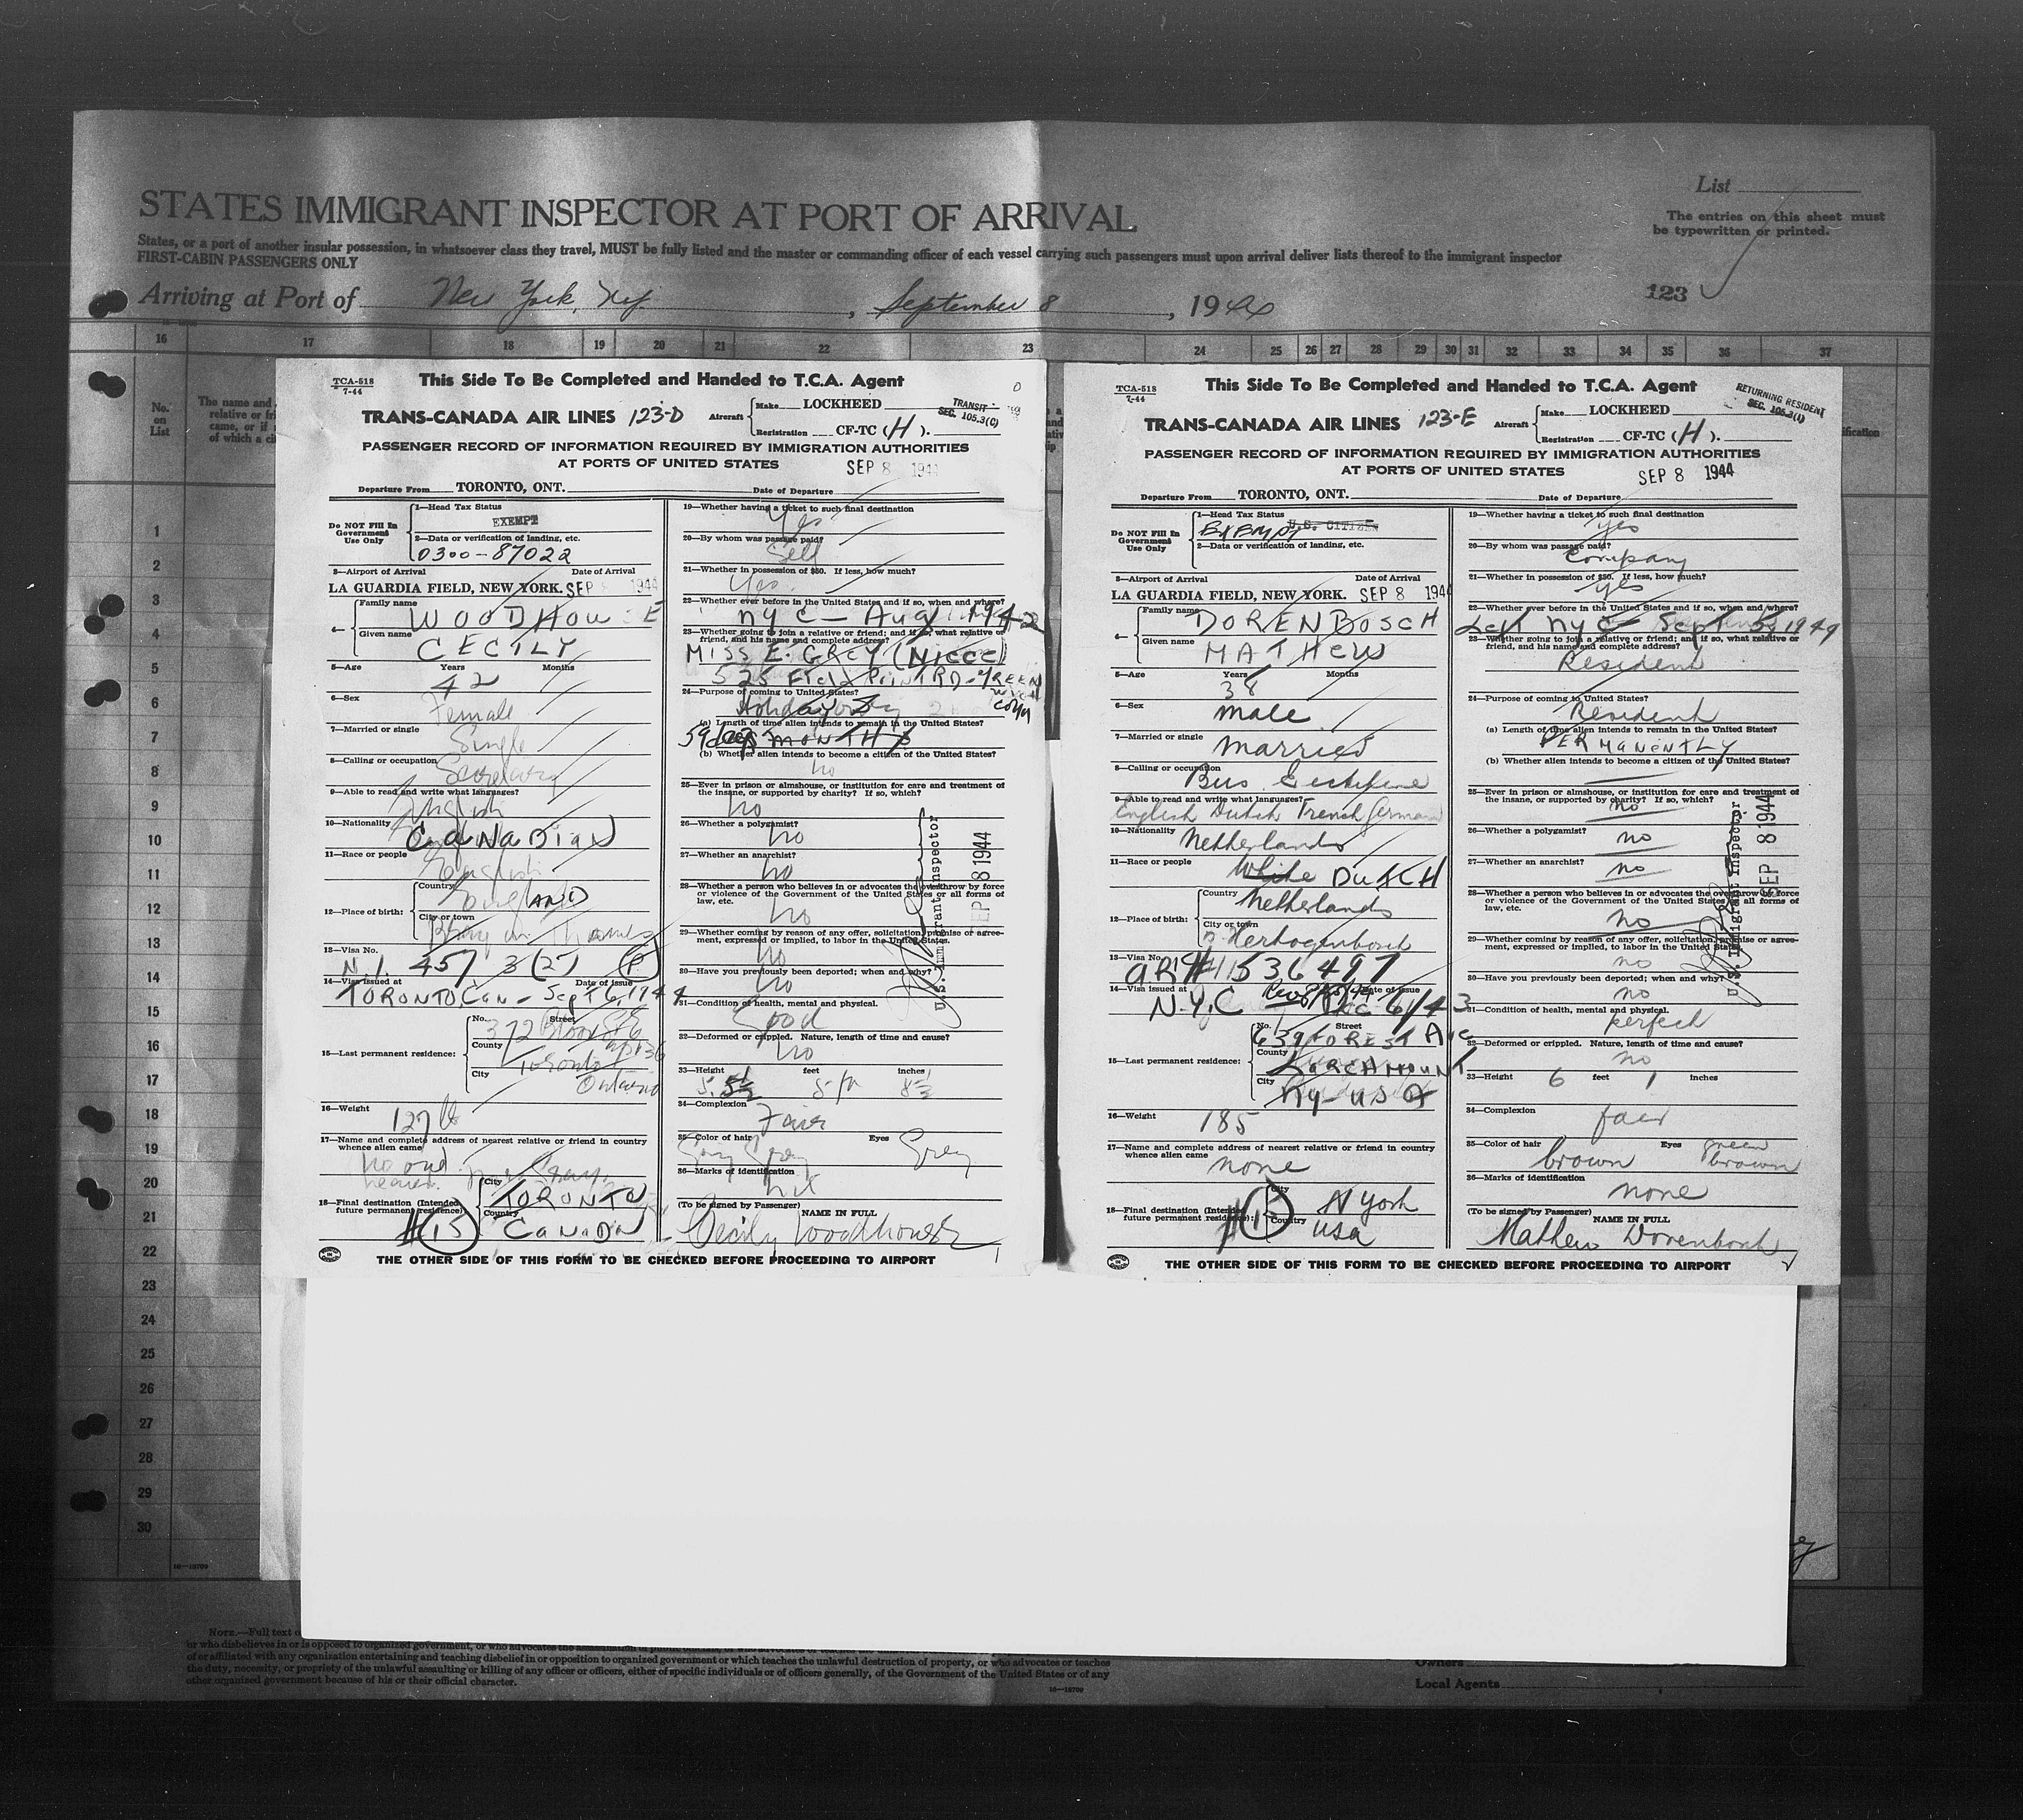 STATES IMMIGRANT INSPECTOR AT PORT OF ARRIVAL
List
The entries on this sheet must
be typewritten or printed.
States, or a port of another insular possession, in whatsoever class they travel, MUST be fully listed and the master or commanding officer of each vessel carrying such passengers must upon arrival deliver lists thereof to the immigrant inspector
FIRST-CABIN PASSENGERS ONLY
Arriving at Port of New York, Ny. , September 8 , 1944
123
16 17 18 19 20 21 22 23 24 25 26 27 28 29 30 31 32 33 34 35 36 37
No.
on
List
The name and
relative or fri
came, or if
of which a cit
1
2
3
4
5
6
7
8
9
10
11
12
13
14
15
16
17
18
19
20
21
22
23
24
25
26
27
28
29
30
TCA-518
7-44
This Side To Be Completed and Handed to T.C.A. Agent
TRANS-CANADA AIR LINES 123-D
Aircraft
Make LOCKHEED
Registration CF-TC (H).
TRANSIT
SEC. 105.3(C)
PASSENGER RECORD OF INFORMATION REQUIRED BY IMMIGRATION AUTHORITIES
AT PORTS OF UNITED STATES
SEP 8 1944
Departure From TORONTO, ONT. Date of Departure
Do NOT Fill In
Government
Use Only
1—Head Tax Status
EXEMPT
2—Data or verification of landing, etc.
0300-87022
3—Airport of Arrival Date of Arrival
LA GUARDIA FIELD, NEW YORK. SEP 8 1944
4—
Family name
WOODHOUSE
Given name
CECILY
5—Age Years Months
42
6—Sex
Female
7—Married or single
Single
8—Calling or occupation
Secretary
9—Able to read and write what languages?
English
10—Nationality
CANADIAN
11—Race or people
English
12—Place of birth:
Country
England
City or town
13—Visa No.
N.I. 457 3(2) (P)
14—Visa issued at Date of issue
TORONTO, Can - Sept 6, 1944
15—Last permanent residence:
No. Street
372 Bloor St E
County
Toronto
City
Ontario
16—Weight
127 lb
17—Name and complete address of nearest relative or friend in country
whence alien came
no one
18—Final destination (Intended
future permanent residence):
#15
City
TORONTO
Country
CANADA
19—Whether having a ticket to such final destination
Yes
20—By whom was passage paid?
Self
21—Whether in possession of $50. If less, how much?
Yes
22—Whether ever before in the United States and if so, when and where?
NYC - Aug 1942
23—Whether going to join a relative or friend; and if so, what relative or
friend, and his name and complete address?
MISS E. GREY (NIECE)
525 Field Point RD - GREEN
WICH
CONN
24—Purpose of coming to United States?
Holiday only
(a) Length of time alien intends to remain in the United States?
59 days MONTHS
(b) Whether alien intends to become a citizen of the United States?
no
25—Ever in prison or almshouse, or institution for care and treatment of
the insane, or supported by charity? If so, which?
no
26—Whether a polygamist?
no
27—Whether an anarchist?
no
28—Whether a person who believes in or advocates the overthrow by force
or violence of the Government of the United States or all forms of
law, etc.
no
29—Whether coming by reason of any offer, solicitation, promise or agree-
ment, expressed or implied, to labor in the United States.
no
30—Have you previously been deported; when and why?
no
31—Condition of health, mental and physical.
Good
32—Deformed or crippled. Nature, length of time and cause?
no
33—Height feet inches
34—Complexion
Fair
35—Color of hair Eyes
Grey
36—Marks of identification
nil
(To be signed by Passenger) NAME IN FULL
Cecily Woodhouse
U.S. Immigrant Inspector
SEP 8 1944
THE OTHER SIDE OF THIS FORM TO BE CHECKED BEFORE PROCEEDING TO AIRPORT
TCA-518
7-44
This Side To Be Completed and Handed to T.C.A. Agent
TRANS-CANADA AIR LINES 123-E
Aircraft
Make LOCKHEED
Registration CF-TC (H).
RETURNING RESIDENT
SEC. 105.3(1)
PASSENGER RECORD OF INFORMATION REQUIRED BY IMMIGRATION AUTHORITIES
AT PORTS OF UNITED STATES
SEP 8 1944
Departure From TORONTO, ONT. Date of Departure
Do NOT Fill In
Government
Use Only
1—Head Tax Status
EXEMPT U.S. CITIZEN
2—Data or verification of landing, etc.
3—Airport of Arrival Date of Arrival
LA GUARDIA FIELD, NEW YORK. SEP 8 1944
4—
Family name
DORENBOSCH
Given name
MATHEW
5—Age Years Months
38
6—Sex
male
7—Married or single
married
8—Calling or occupation
Bus
9—Able to read and write what languages?
English Dutch French German
10—Nationality
Netherlands
11—Race or people
White DUTCH
12—Place of birth:
Country
Netherlands
City or town
s Hertogenbosch
13—Visa No.
AR# 11536497
14—Visa issued at Date of issue
N.Y.C Dec 6/43
15—Last permanent residence:
No. Street
639 FOREST Ave
County
LARCHMOUNT
City
NY - USA
16—Weight
185
17—Name and complete address of nearest relative or friend in country
whence alien came
none
18—Final destination (Intended
future permanent residence):
City
N York
Country
USA
19—Whether having a ticket to such final destination
yes
20—By whom was passage paid?
Company
21—Whether in possession of $50. If less, how much?
yes
22—Whether ever before in the United States and if so, when and where?
Left NYC Sept 5, 1944
23—Whether going to join a relative or friend; and if so, what relative or
friend, and his name and complete address?
Resident
24—Purpose of coming to United States?
Resident
(a) Length of time alien intends to remain in the United States?
PERMANENTLY
(b) Whether alien intends to become a citizen of the United States?
25—Ever in prison or almshouse, or institution for care and treatment of
the insane, or supported by charity? If so, which?
no
26—Whether a polygamist?
no
27—Whether an anarchist?
no
28—Whether a person who believes in or advocates the overthrow by force
or violence of the Government of the United States or all forms of
law, etc.
no
29—Whether coming by reason of any offer, solicitation, promise or agree-
ment, expressed or implied, to labor in the United States.
no
30—Have you previously been deported; when and why?
no
31—Condition of health, mental and physical.
perfect
32—Deformed or crippled. Nature, length of time and cause?
no
33—Height 6 feet 1 inches
34—Complexion
fair
35—Color of hair Eyes green
brown brown
36—Marks of identification
none
(To be signed by Passenger) NAME IN FULL
Mathew Dorenbosch
U.S. Immigrant Inspector
SEP 8 1944
THE OTHER SIDE OF THIS FORM TO BE CHECKED BEFORE PROCEEDING TO AIRPORT
16—18709
NOTE.—Full text o
or who disbelieves in or is opposed to organized government, or who advocates the
of or affiliated with any organization entertaining and teaching disbelief in or opposition to organized government or which teaches the unlawful destruction of property, or who advocates or teaches
the duty, necessity, or propriety of the unlawful assaulting or killing of any officer or officers, either of specific individuals or of officers generally, of the Government of the United States or of any
other organized government because of his or their official character.
16—18709
Owners
Local Agents